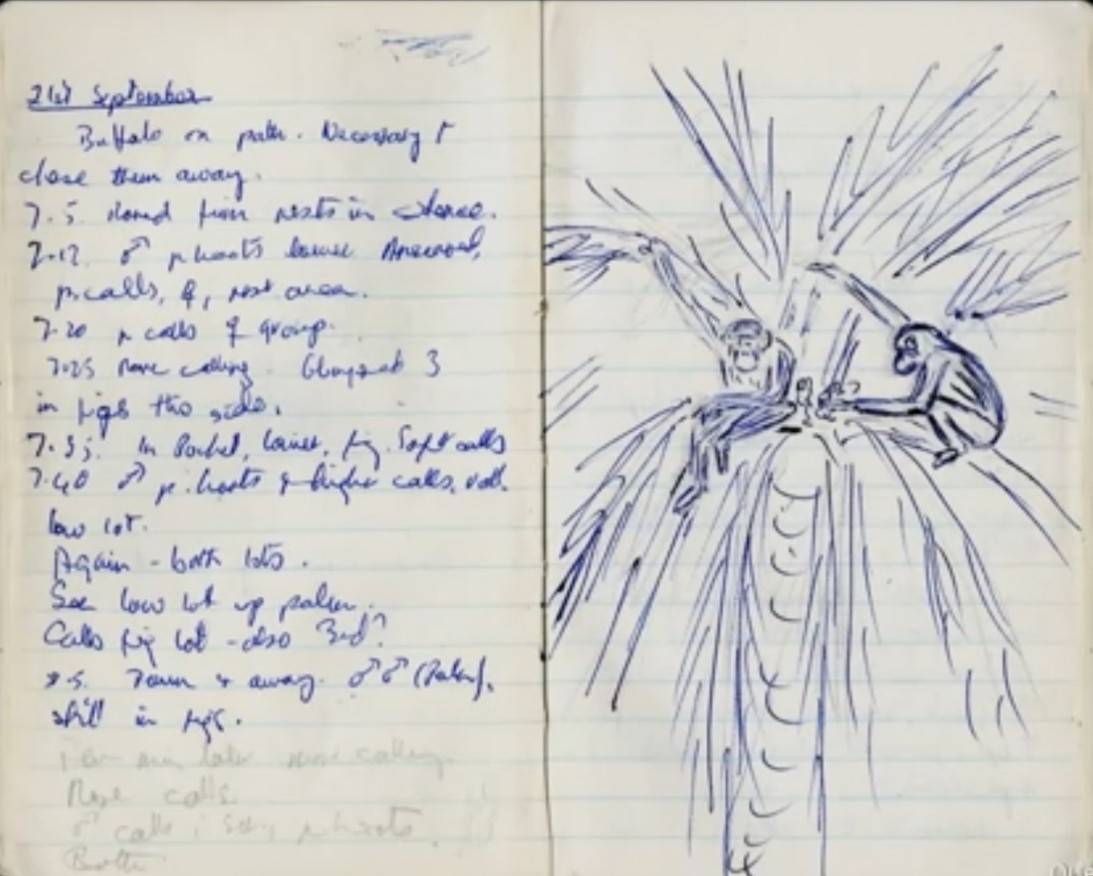 21st September
Buffalo on path. Necessary t
chase them away.
7.5. from nests in silence.
7.12. ♂ p hoots lower. Answered,
p. calls, ♀, nest area.
7.20 p calls ♀ group.
7.25 More calling. 3
in figs this side.
7.35. In lower, fig. Soft calls
7.40 ♂ p. hoots & higher calls,
low lot.
Again - both lots.
See low lot up palm.
Calls fig lot - also 3rd?
8.5. Down & away. ♂♂ (Palm),
still in figs.
min later more calling.
More calls.
♂ calls p hoots.
Both